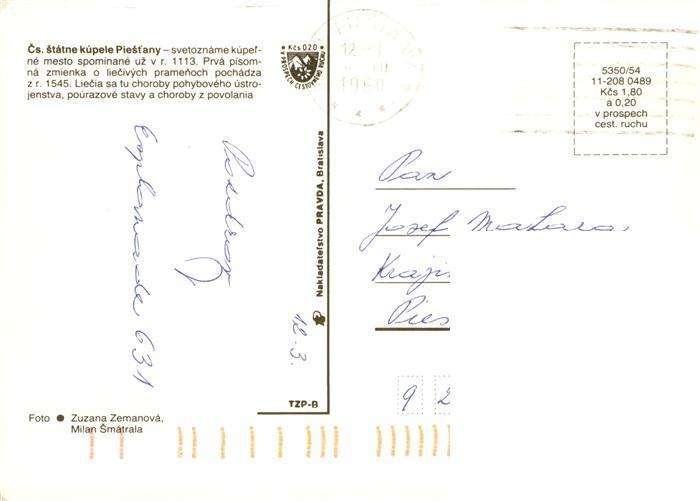 Čs. štátne kúpele Piešťany – svetoznáme kúpeľ-
né mesto spomínané už v r. 1113. Prvá písom-
ná zmienka o liečivých prameňoch pochádza
z r. 1545. Liečia sa tu choroby pohybového ústro-
jenstva, poúrazové stavy a choroby z povolania
Kčs 0,20
V PROSPECH CESTOVNÉHO RUCHU
5350/54
11-208 0489
Kčs 1,80
a 0,20
v prospech
cest. ruchu
Pozdrav
Esplanade 631
12.3.
Nakladateľstvo PRAVDA, Bratislava
TZP-B
Pan
Jozef
Kraji
Pies
9 2
Foto ● Zuzana Zemanová,
Milan Šmátrala